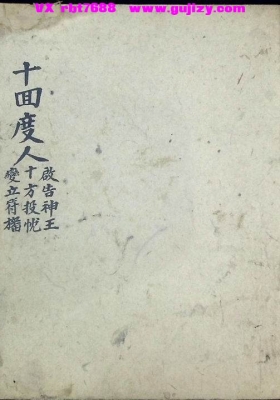 VX rbt7688  www.gujizy.com
十回度人
啟告神王
十方投悦
變立符旛